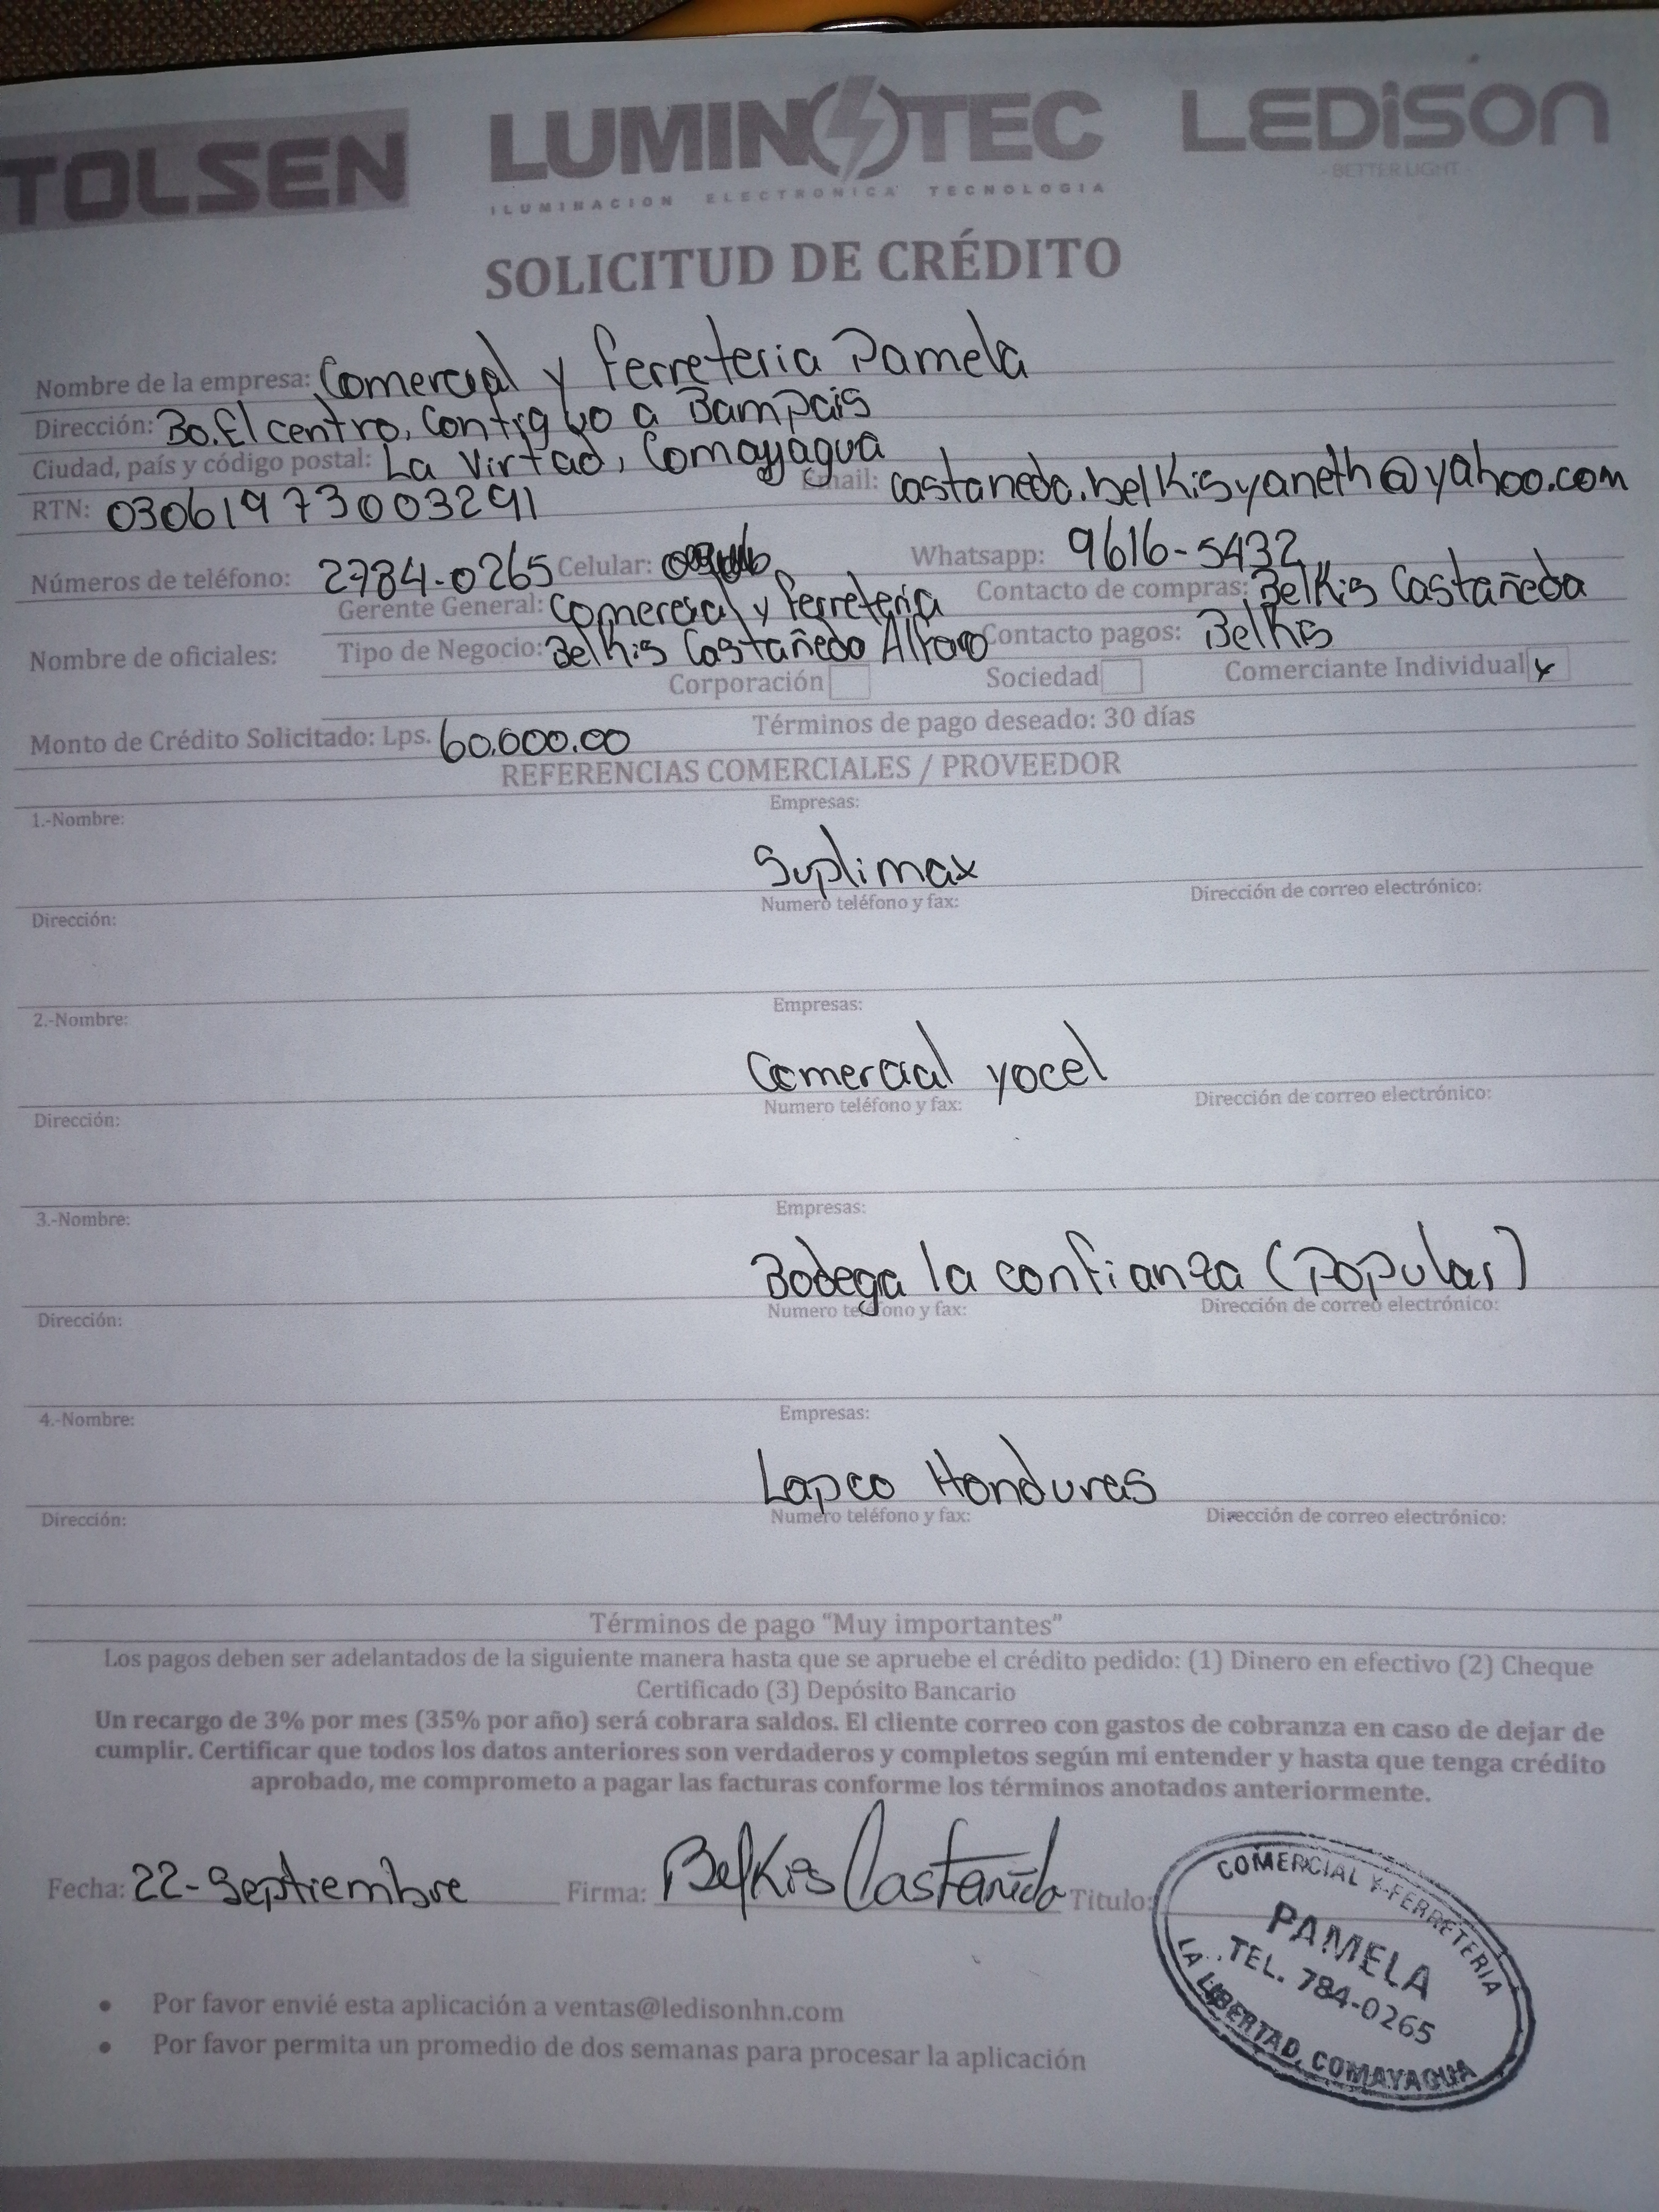 TOLSEN LUMINOTEC LEDiSON
ILUMINACION ELECTRONICA TECNOLOGIA
BETTER LIGHT
SOLICITUD DE CRÉDITO
Nombre de la empresa: Comercial y ferreteria Pamela
Dirección: Bo. El centro, Contiguo a Bampais
Ciudad, país y código postal: La Virtad, Comayagua
RTN: 03061973003291 Email: castaneda.belkisyaneth@yahoo.com
Números de teléfono: 2784-0265 Celular: Whatsapp: 9616-5432
Gerente General: Comercial y ferreteria Contacto de compras: Belkis Castañeda
Nombre de oficiales: Tipo de Negocio: Belkis Castañeda Alfaro Contacto pagos: Belkis
Corporación Sociedad Comerciante Individual x
Monto de Crédito Solicitado: Lps. 60.000.00 Términos de pago deseado: 30 días
REFERENCIAS COMERCIALES / PROVEEDOR
1.-Nombre: Empresas:
Suplimax
Dirección: Numero teléfono y fax: Dirección de correo electrónico:
2.-Nombre: Empresas:
Comercial yocel
Dirección: Numero teléfono y fax: Dirección de correo electrónico:
3.-Nombre: Empresas:
Bodega la confianza (Popular)
Dirección: Numero teléfono y fax: Dirección de correo electrónico:
4.-Nombre: Empresas:
Lapco Honduras
Dirección: Numero teléfono y fax: Dirección de correo electrónico:
Términos de pago “Muy importantes”
Los pagos deben ser adelantados de la siguiente manera hasta que se apruebe el crédito pedido: (1) Dinero en efectivo (2) Cheque
Certificado (3) Depósito Bancario
Un recargo de 3% por mes (35% por año) será cobrara saldos. El cliente correo con gastos de cobranza en caso de dejar de
cumplir. Certificar que todos los datos anteriores son verdaderos y completos según mi entender y hasta que tenga crédito
aprobado, me comprometo a pagar las facturas conforme los términos anotados anteriormente.
Fecha: 22-Septiembre Firma: Belkis Castañeda Titulo:
COMERCIAL Y FERRETERIA
PAMELA
TEL. 784-0265
LA LIBERTAD, COMAYAGUA
• Por favor envié esta aplicación a ventas@ledisonhn.com
• Por favor permita un promedio de dos semanas para procesar la aplicación